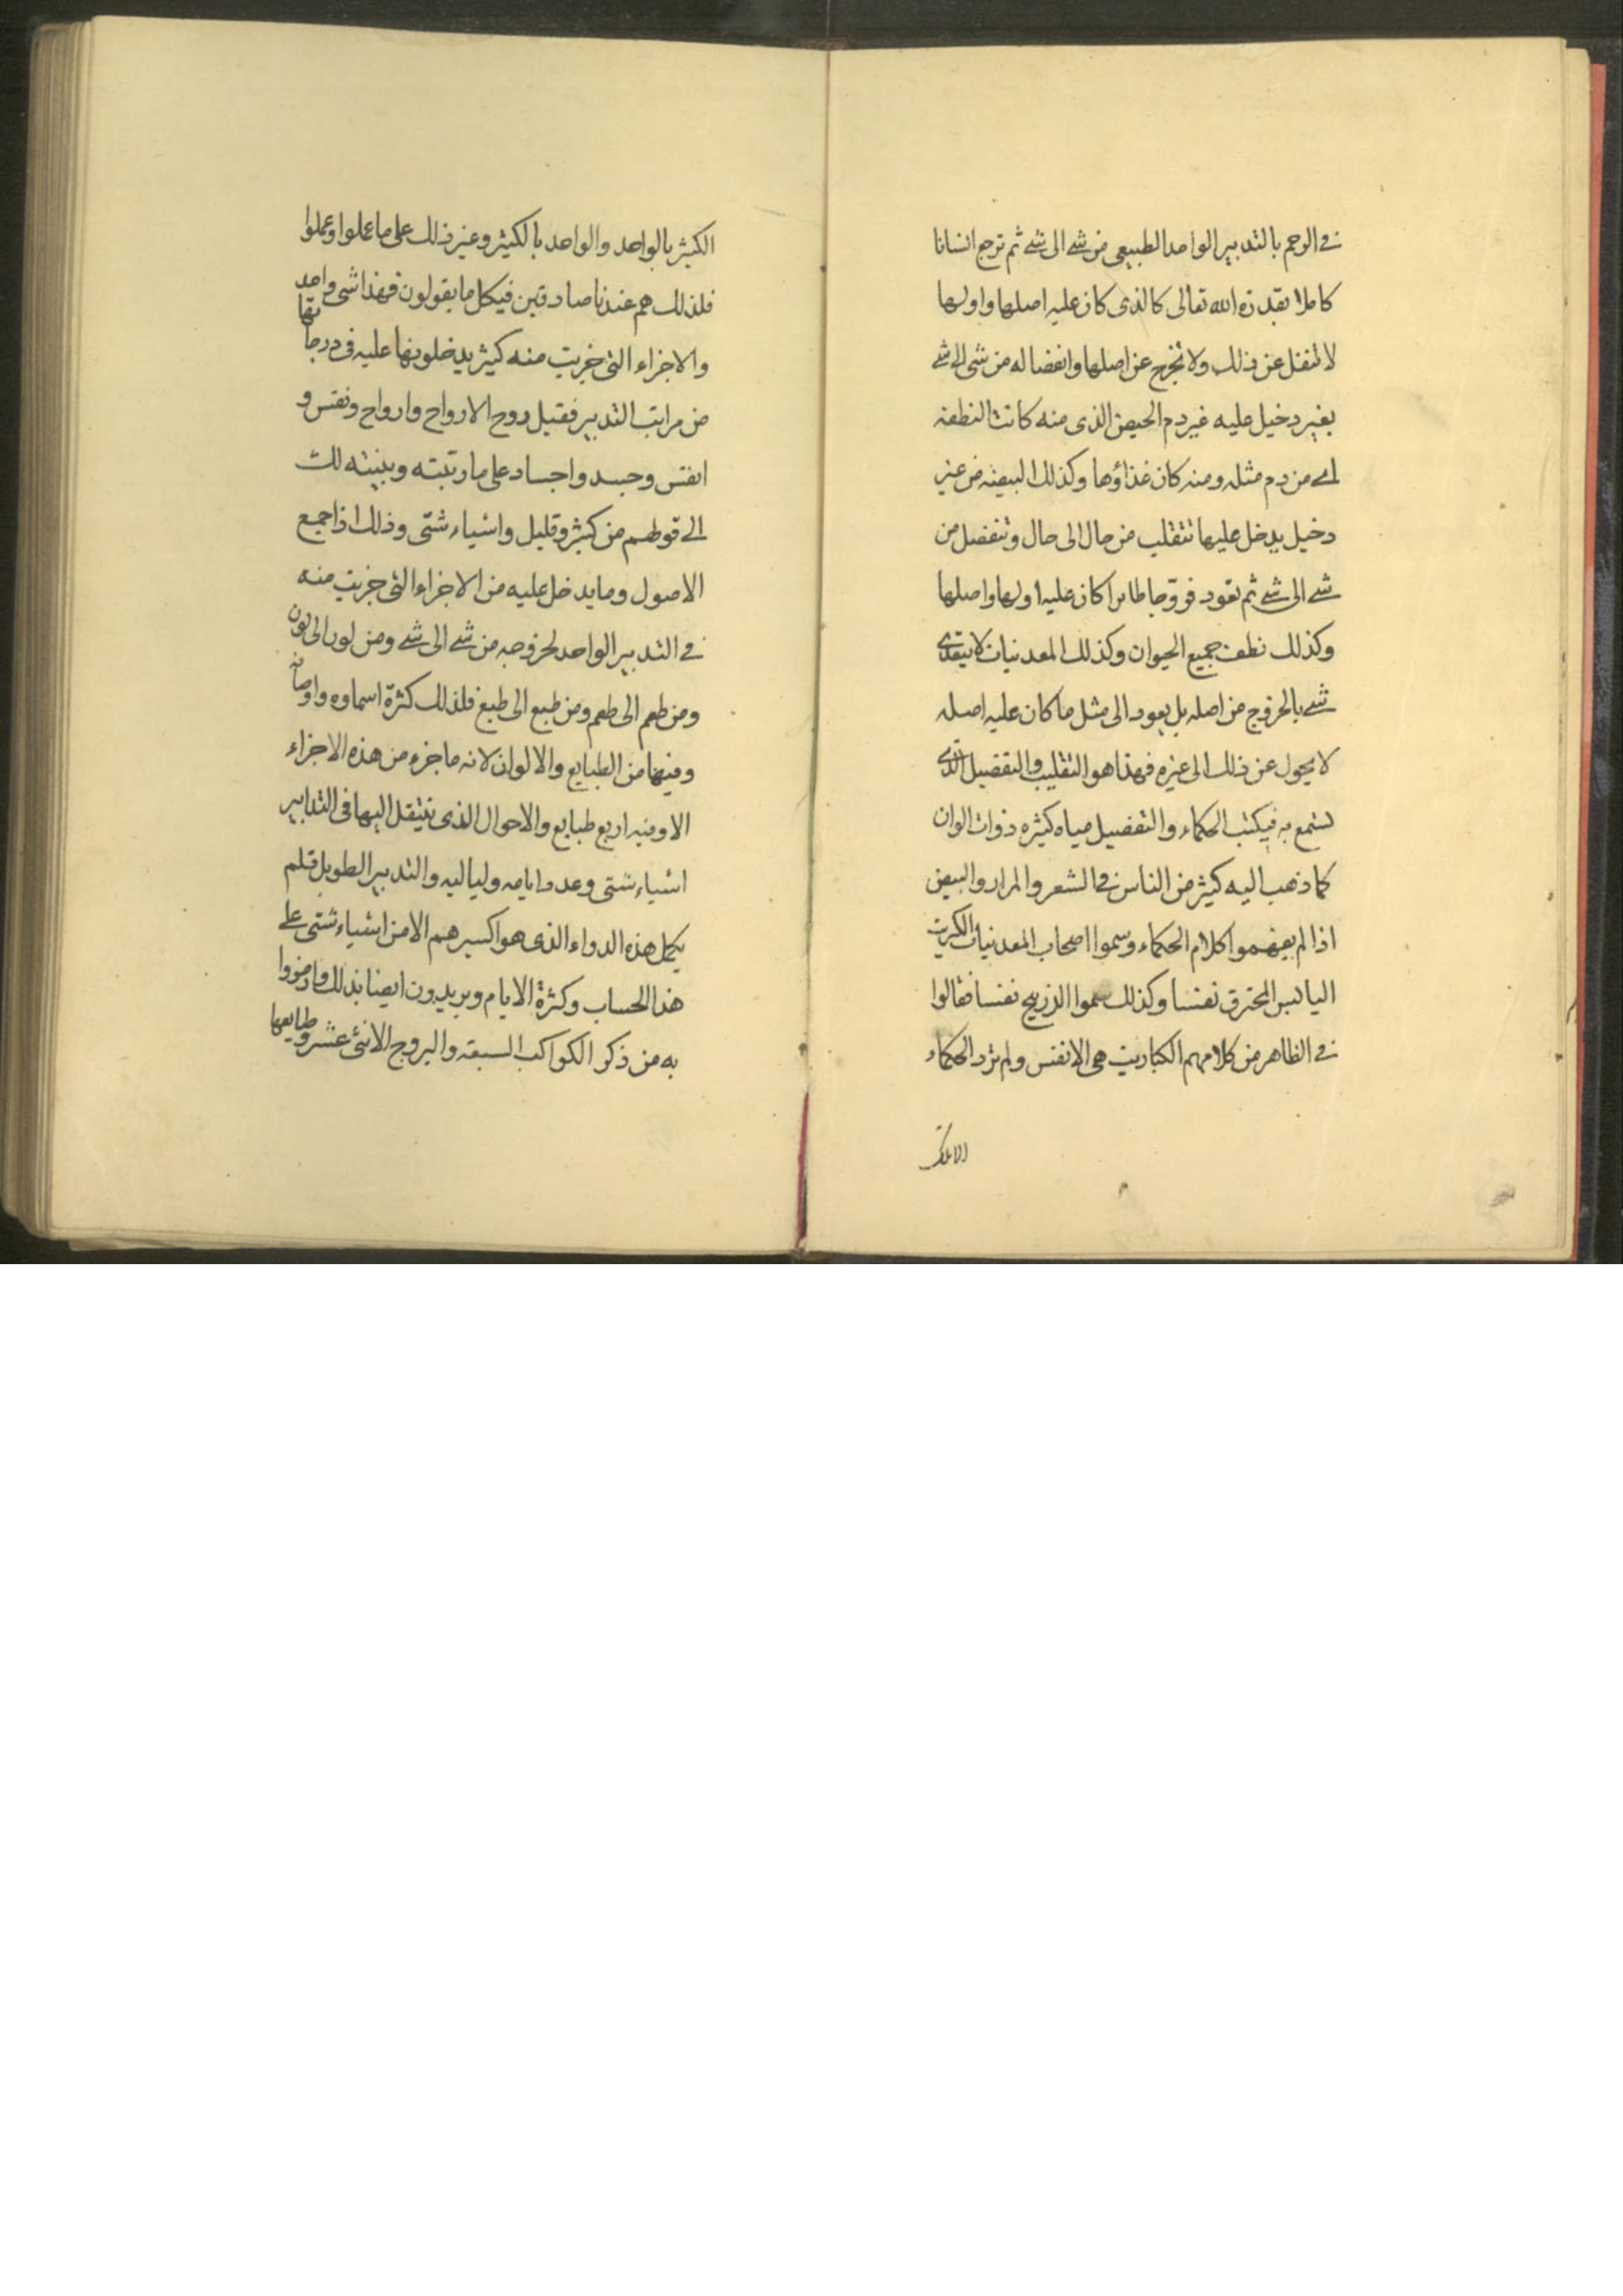 في الرحم بالتدبير الواحد الطبيعي من شے الى شے ثم ترجع انسانا
كاملا بقدرة الله تعالى كالذى كان عليه اصلها واولها
لا تنتقل عن ذلك ولا تخرج عن اصلها وانفصاله من شى الى شے
بغير دخيل عليه غير دم الحيض الذى منه كانت النطفة
اے من دم مثله ومنه كان غذاؤها وكذلك البيضة من غير
دخيل يدخل عليها تتقلب من حال الى حال وتنفصل من
شے الى شے ثم تعود فروجا طايرا كان عليه اولها واصلها
وكذلك نطف جميع الحيوان وكذلك المعدنيات لا يبتدى
شے بالخروج من اصله بل يعود الى مثل ما كان عليه اصله
لا يحول عن ذلك الى غيره فهذا هو التقليب والتفصيل الذى
تستمع به فيكتب الحكماء والتفصيل مياه كثيره ذوات الوان
كما ذهب اليه كثير من الناس في الشعر والمرار والبيض
اذا لم يفهموا كلام الحكماء وسموا اصحاب المعدنيات الكبريت
اليابس المحترق نفسا وكذلك سموا الزرنيخ نفسا فقالوا
في الظاهر من كلامهم الكباريت هى الانفس ولم ترد الحكماء
الكثير بالواحد والواحد بالكثير وغير ذلك على ما عملوا وعملوا
فلذلك هم عندنا صادقين فيكل ما يقولون فهذا شى واحد
والاجزاء التى خربت منه كثير يدخلونها عليه فى درجاتها
من مراتب التدبير فقيل روح الارواح وارواح ونفس و
انفس وجسد واجساد على ما رتبته وبينته لك
الى قولهم من كثير وقليل واشياء شتى وذلك اذا جمع
الاصول وما يدخل عليه من الاجزاء التى جزيت منه
في التدبير الواحد لخروجه من شے الى شے ومن لون الى لون
ومن طعم الى طعم ومن طبع الى طبع فلذلك كثرة اسماوه واوصافه
وفيها من الطبايع والالوان لانه ما جزء من هذه الاجزاء
الا وفيه اربع طبايع والاحوال الذى تنتقل اليها فى التدابير
اشياء شتى وعدد ايامه ولياليه والتدبير الطويل فلم
يكمل هذه الدواء الذى هو اكسيرهم الا من اشياء شتى على
هذا الحساب وكثرة الايام ويريدون ايضا بذلك وما رمزوا
به من ذكر الكواكب السبعة والبروج الاثنى عشر وطبايعها